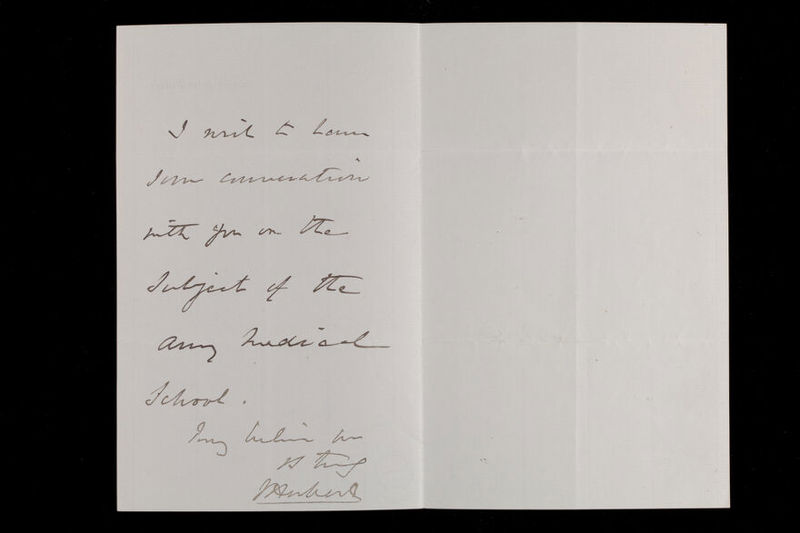 I wish to have
some conversation
with you on the
Subject of the
Army Medical
School.
believe me
Herbert